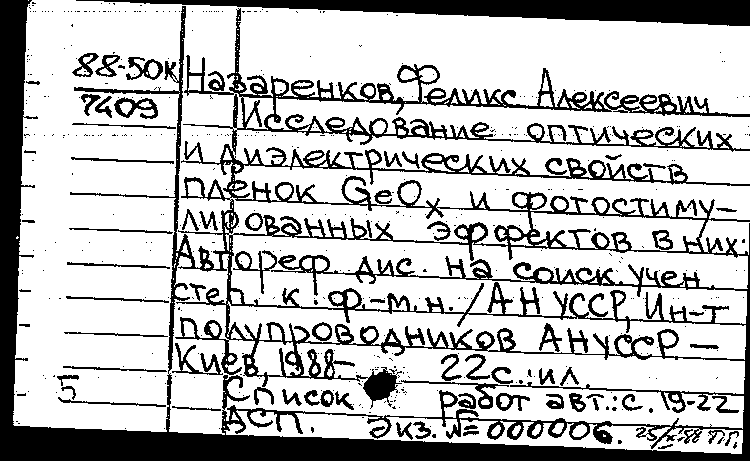 88-50К Назаренков, Феликс Алексеевич
7409 Исследование оптических
и диэлектрических свойств
пленок GeOx и фотостиму-
лированных эффектов в них.
Автореф. дис. на соиск. учен.
степ. к. ф.-м.н. / АН УССР, Ин-т
полупроводников АН УССР –
Киев, 1988– 22с.:ил.
5 Список работ авт.: с. 19-22
ДСП. Экз. №=000006.